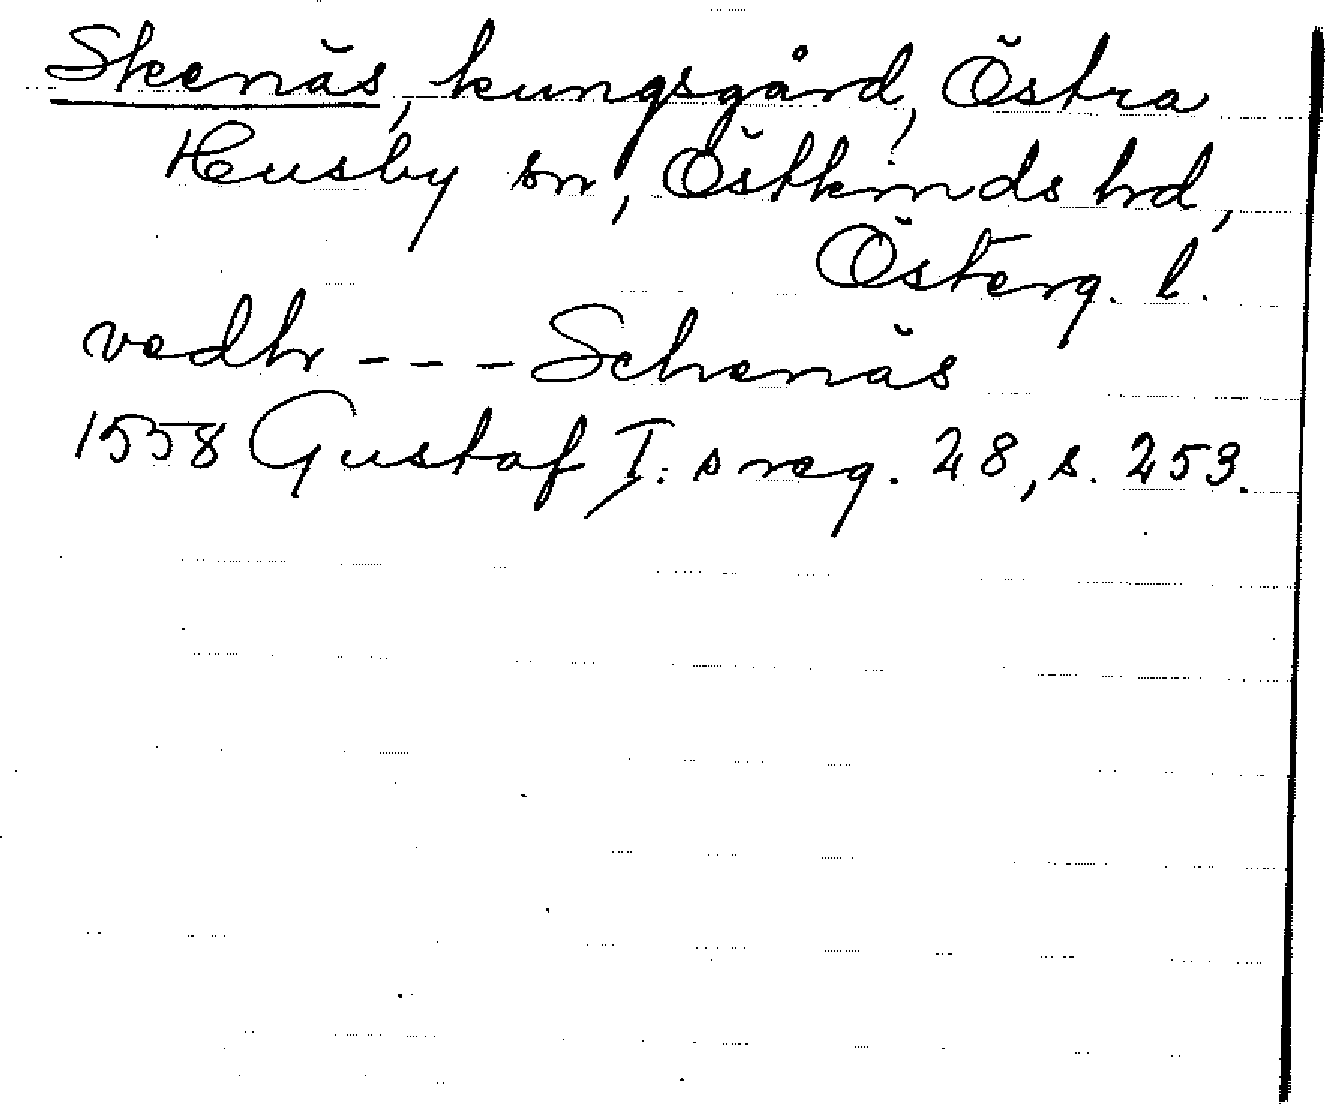 Skenäs, kungsgård, Östra
Husby sn, Östkinds hrd,
Österg. l.
vedhr - - - Schenäs
1558 Gustaf I:s reg. 28, s. 253.